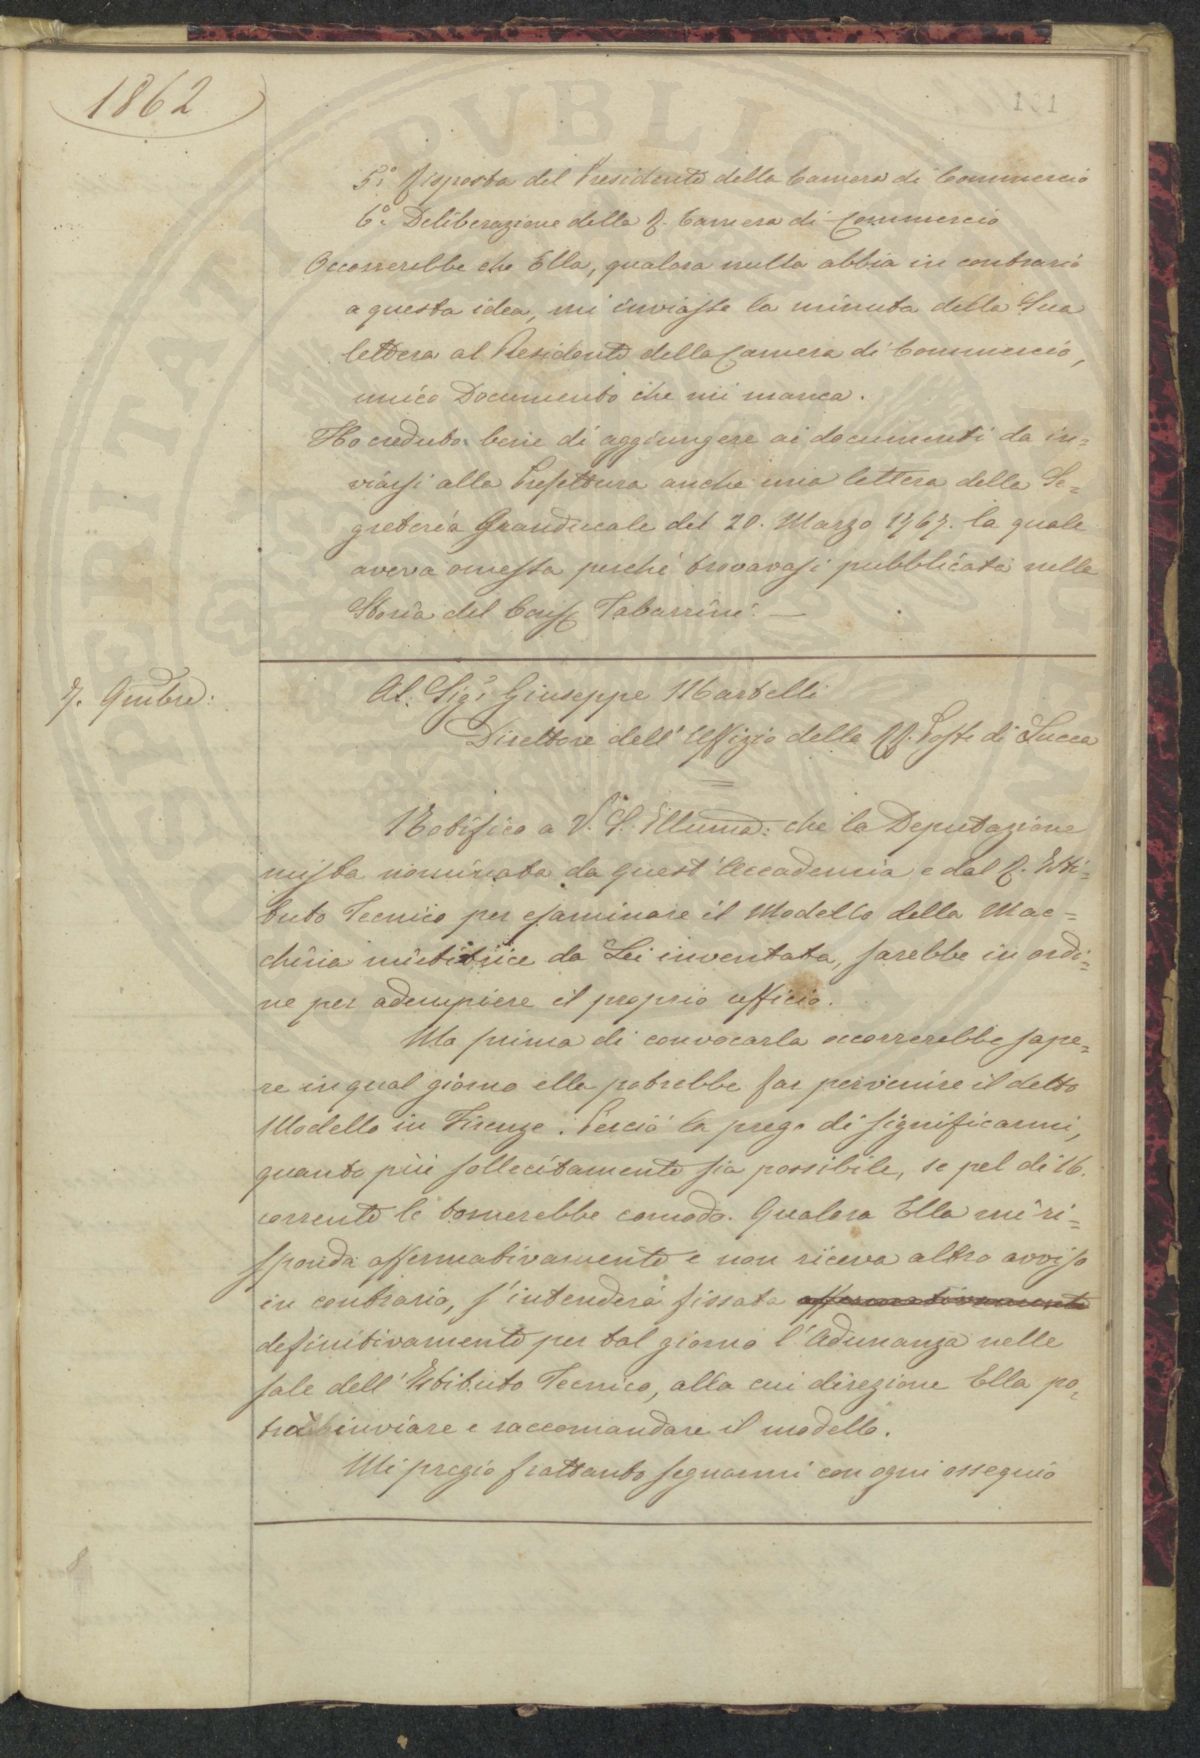 1862
191
5.° Risposta del Presidente della Camera di Commercio
6.° Deliberazione della R. Camera di Commercio
Occorrerebbe che Ella, qualora nulla abbia in contrario
a questa idea, mi inviasse la minuta della Sua
lettera al Presidente della Camera di Commercio,
unico Documento che mi manca.
Ho creduto bene di aggiungere ai documenti da in=
viarsi alla Prefettura anche una lettera della Se=
greteria Granducale del 20. Marzo 1767. la quale
aveva omessa perchè trovavasi pubblicata nella
Storia del Cons. Tabarrini. —
7. 9mbre:
Al Sig.r Giuseppe Martelli
Direttore dell'Uffizio delle RR. Poste di Lucca
Notifico a V. S. Illuma: che la Deputazione
mista nominata da quest'Accademia e dal R. Isti=
tuto Tecnico per esaminare il Modello della Mac=
china mietitrice da Lei inventata, sarebbe in ordi=
ne per adempiere il proprio ufficio.
Ma prima di convocarla occorrerebbe sape=
re in qual giorno ella potrebbe far pervenire il detto
Modello in Firenze. Perciò la prego di significarmi,
quanto più sollecitamente sia possibile, se pel dì 16.
corrente le tornerebbe comodo. Qualora Ella mi ri=
sponda affermativamente e non riceva altro avviso
in contrario, s'intenderà fissata affermativamente
definitivamente per tal giorno l'Adunanza nelle
sale dell'Istituto Tecnico, alla cui direzione Ella po=
trà inviare e raccomandare il modello.
Mi pregio frattanto segnarmi con ogni ossequio